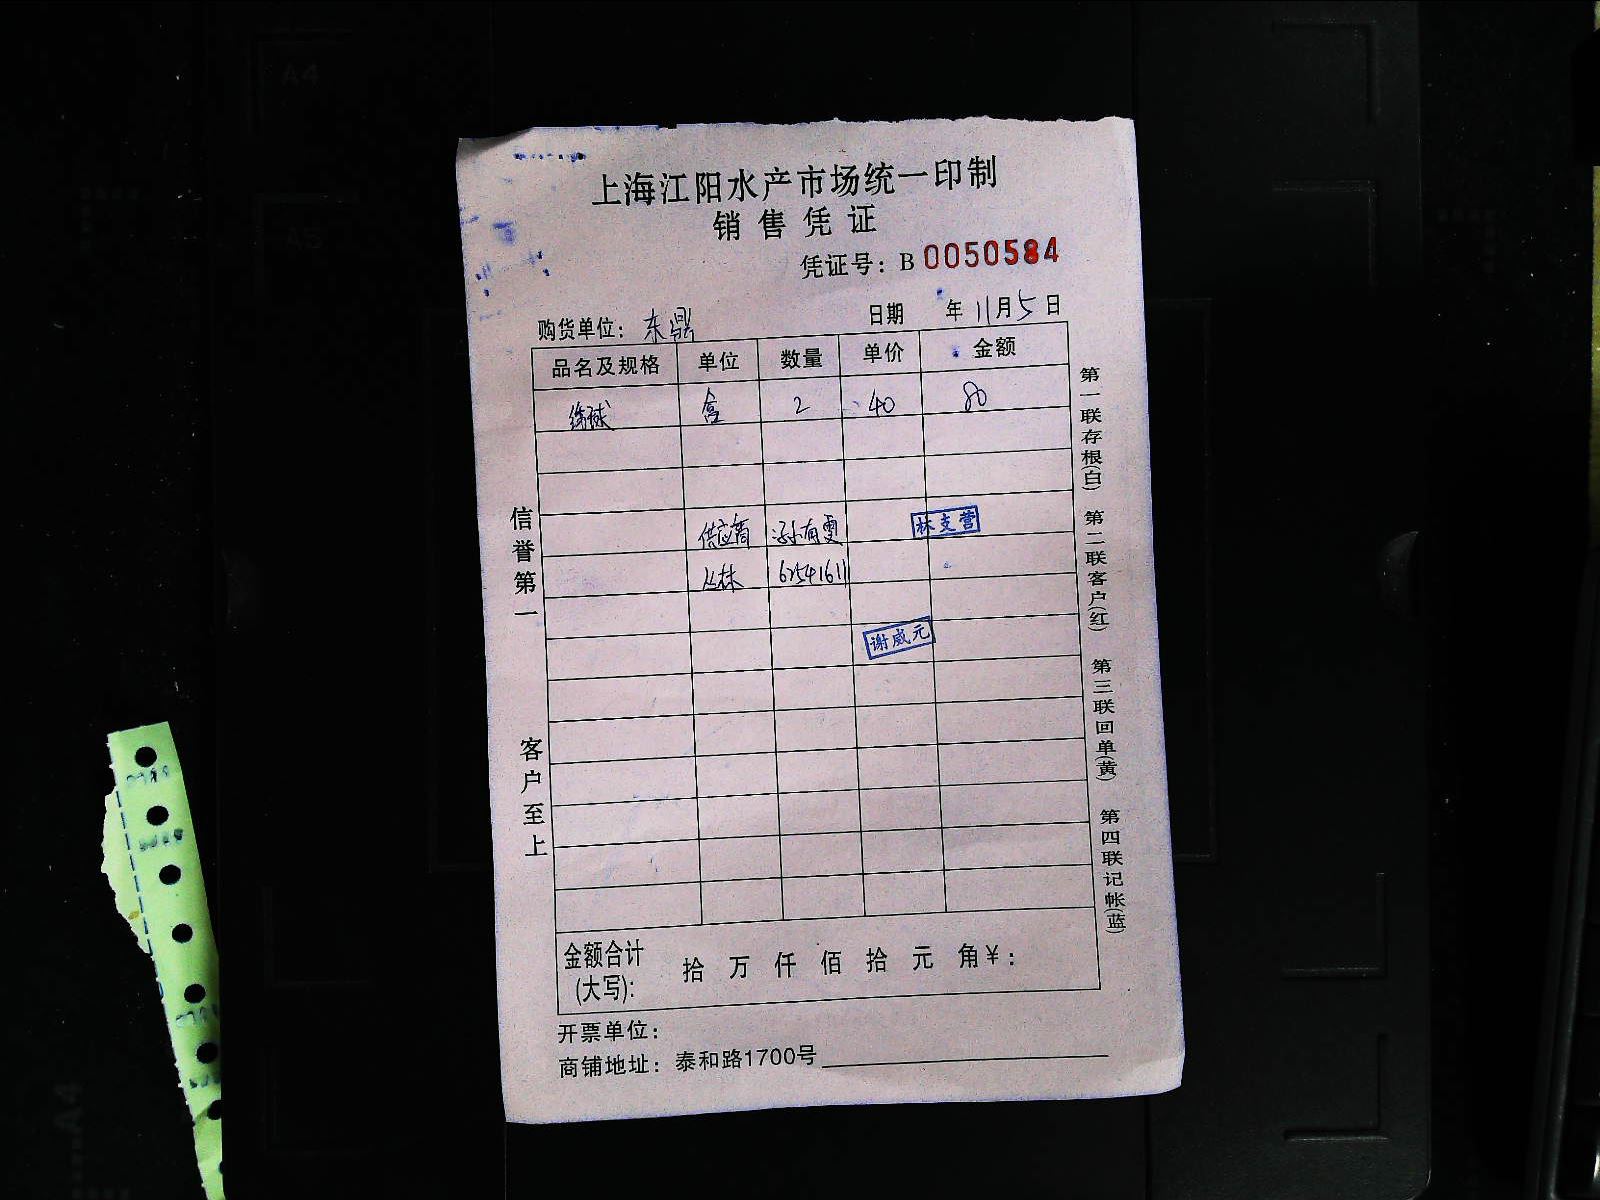 上海江阳水产市场统一印制
销售凭证
凭证号：B 0050584
购货单位：东鼎 日期 年11月5日
品名及规格 单位 数量 单价 金额
盒 2 40 80
供应商
丛林 62541611
林支营
谢威元
信誉第一
客户至上
第一联存根(白) 第二联客户(红) 第三联回单(黄) 第四联记帐(蓝)
金额合计(大写): 拾 万 仟 佰 拾 元 角 ¥:
开票单位：
商铺地址：泰和路1700号
A4
A5
A4